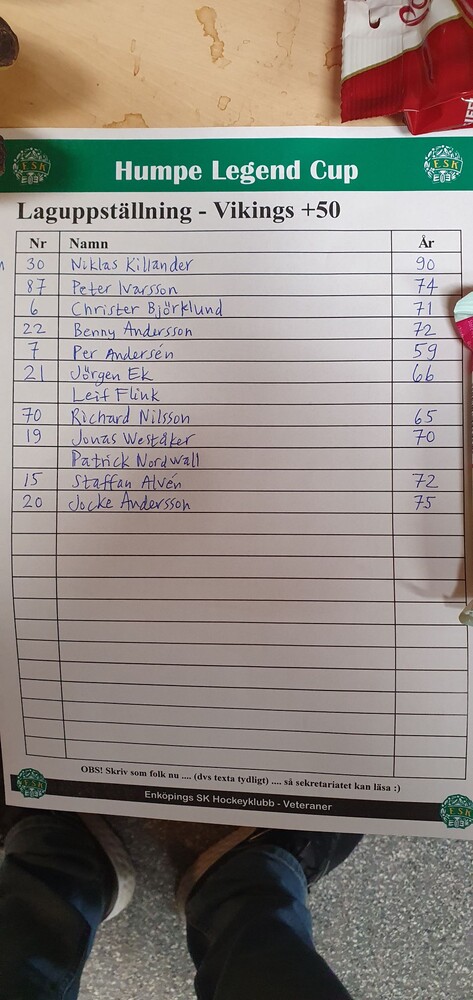 ESK Humpe Legend Cup ESK
Laguppställning - Vikings +50
Nr Namn År
30 Niklas Killander 90
87 Peter Ivarsson 74
6 Christer Björklund 71
22 Benny Andersson 72
7 Per Andersén 59
21 Jörgen Ek 66
Leif Flink
70 Richard Nilsson 65
19 Jonas Weståker 70
Patrick Nordwall
15 Staffan Alvén 72
20 Jocke Andersson 75
OBS! Skriv som folk nu .... (dvs texta tydligt) .... så sekretariatet kan läsa :)
Enköpings SK Hockeyklubb - Veteraner
ESK ESK